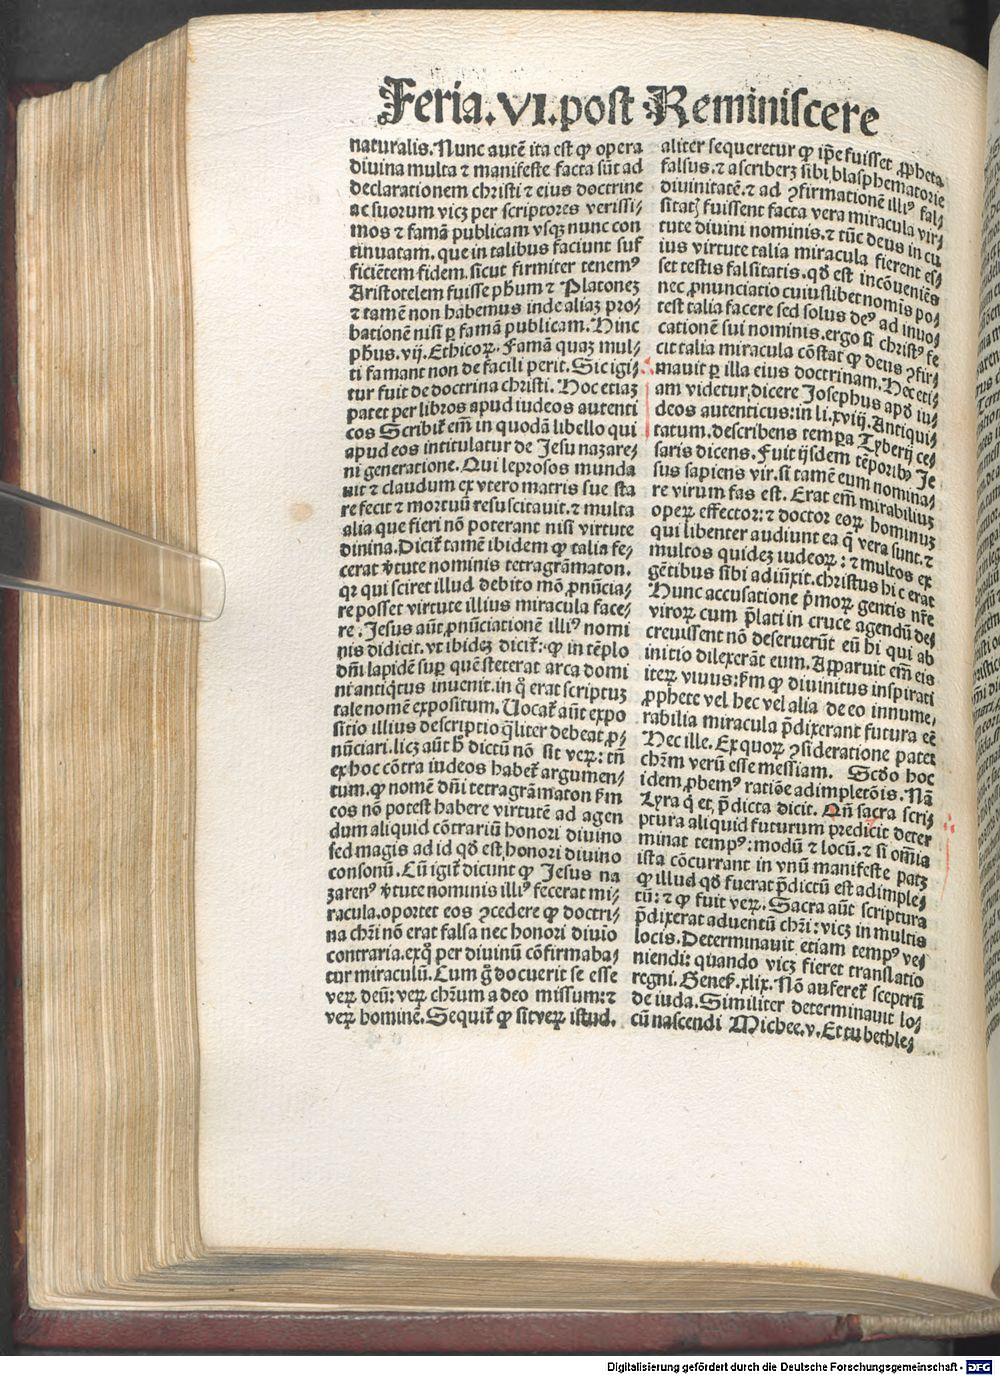 Feria.VI.post Reminiscere
naturalis.Nunc autē ita est ꝙ opera
diuina multa ⁊ manifeste facta sūt ad
declarationem christi ⁊ eius doctrine
ac suorum vicꝫ per scriptores verissi⸗
mos ⁊ famā publicam vsqꝫ nunc con
tinuatam.que in talibus faciunt suf
ficiētem fidem.sicut firmiter tenemꝰ
Aristotelem fuisse pħum ⁊ Platoneꝫ
⁊ tamē non habemus inde aliaꝫ pro⸗
bationē nisi ꝑ famā publicam.Hinc
pħus.vij.Ethicoꝝ. Famā quaꝫ mul⸗
ti famant non de facili perit.Sic igi⸗
tur fuit de doctrina christi. Hoc etiaꝫ
patet per libros apud iudeos autenti
cos Scribiť em̄ in quodā libello qui
apud eos intitulatur de Jesu nazare⸗
ni generatione.Qui leprosos munda
uit ⁊ claudum ex vtero matris sue sta
re fecit ⁊ mortuū resuscitauit.⁊ multa
alia que fieri nō poterant nisi virtute
diuina.Diciť tamē ibidem ꝙ talia fe⸗
cerat v̓tute nominis tetragrāmaton.
qꝛ qui sciret illud debito mō ꝓnūcia⸗
re posset virtute illius miracula face⸗
re.Jesus aūt ꝓnūciationē illiꝰ nomi
nis didicit.vt ibideꝫ diciť:ꝙ in tēplo
dn̄i lapidē suꝑ quē steterat arca domi
ni antiq̇tus inuenit.in q̊ erat scriptuꝫ
tale nomē expositum.Uocať aūt expo
sitio illius descriptio q̄liter debeat ꝓ⸗
nūciari.licꝫ aūt ħ dictū nō sit veꝝ: tn̄
ex hoc cōtra iudeos habeť argumen⸗
tum.ꝙ nomē dn̄i tetragrāmaton ẜm
eos nō potest habere virtutē ad agen
dum aliquid cōtrariū honori diuino
sed magis ad id qď est honori diuino
consonū.Cū igiť dicunt ꝙ Jesus na
zarenꝰ v̓tute nominis illiꝰ fecerat mi⸗
racula.oportet eos ꝯcedere ꝙ doctri⸗
na chr̄i nō erat falsa nec honori diuīo
contraria.exq̊ per diuinū cōfirmaba⸗
tur miraculū.Cum g̊ docuerit se esse
veꝝ deū: veꝝ chr̄ium a deo missum:⁊
veꝝ hominē.Sequiť ꝙ sit veꝝ istud.
aliter sequeretur ꝙ ip̄e fuisset ꝓpheta
falsus.⁊ ascriberꝫ sibi blasphematorie
diuinitatē.⁊ ad ꝯfirmationē illiꝰ fal⸗
sitatꝭ fuissent facta vera miracula vir⸗
tute diuini nominis.⁊ tūc deus in cu
ius virtute talia miracula fierent es⸗
set testis falsitatis.qď est incōueniēs
nec ꝓnunciatio cuiuslibet nomis po⸗
test talia facere sed solus deꝰ ad inuo⸗
cationē sui nominis.ergo si christꝰ fe
cit talia miracula cōstat ꝙ deus ꝯfir⸗
mauit ꝑ illa eius doctrinam.Hoc eti⸗
am videtur dicere Josephus apď iu⸗
deos autenticus:in li.xviij.Antiqui⸗
tatum.describens tempa Tyberij ce⸗
saris dicens.Fuit ijsdem tēporibꝰ Je
sus sapiens vir.si tamē eum nomina⸗
re virum fas est. Erat em̄ mirabiliuꝫ
opeꝝ effector:⁊ doctor eoꝝ hominuꝫ
qui libenter audiunt ea q̄ vera sunt.⁊
multos quideꝫ iudeoꝝ:⁊ multos ex
gētibus sibi adiūxit.christus hic erat
Hunc accusatione p̄moꝝ gentis nr̄e
viroꝝ cum p̄lati in cruce agendū de⸗
creuissent nō deseruerūt eū hi qui ab
initio dilexerāt eum.Apparuit em̄ eis
iteꝝ viuus:ẜm ꝙ diuinitus inspirati
ꝓphete vel hec vel alia de eo innume⸗
rabilia miracula p̄dixerant futura eē
Hec ille. Ex quoꝝ ꝯsideratione patet
chr̄m verū esse messiam. Scďo hoc
idem ꝓbemꝰ ratiōe adimpletōis.Nā
Lyra q̄ et p̄dicta dicit. Qn̄ sacra scri⸗
ptura aliquid futurum predicit deter
minat tempꝰ:modū ⁊ locū.⁊ si om̄ia
ista cōcurrant in vnū manifeste patꝫ
ꝙ illud qď fuerat p̄dictū est adimple⸗
tū:⁊ ꝙ fuit veꝝ.Sacra aūt scriptura
p̄dixerat aduentū chr̄i: vicꝫ in multis
locis.Determinauit etiam tempꝰ ve⸗
niendi: quando vicꝫ fieret translatio
regni. Geneẜ.xlix. Nō aufereť sceptrū
de iuda.Similiter determinauit lo⸗
cū nascendi Michee.v.Et tu bethle⸗
Digitalisierung gefördert durch die Deutsche Forschungsgemeinschaft - DFG